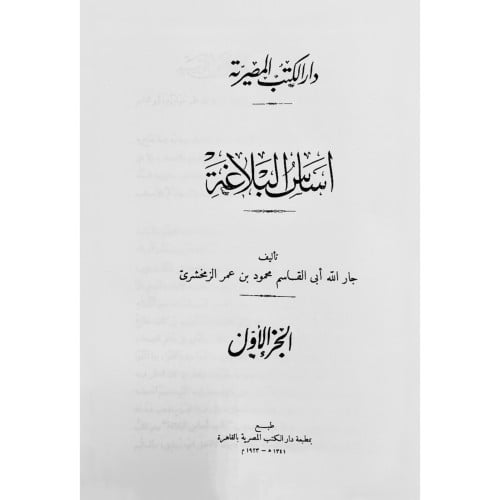 دار الكتب المصرية
أساس البلاغة
تأليف
جار الله أبى القاسم محمود بن عمر الزمخشرى
الجزء الأول
طبع
بمطبعة دار الكتب المصرية بالقاهرة
١٣٤١ ھ – ١٩٢٣ م